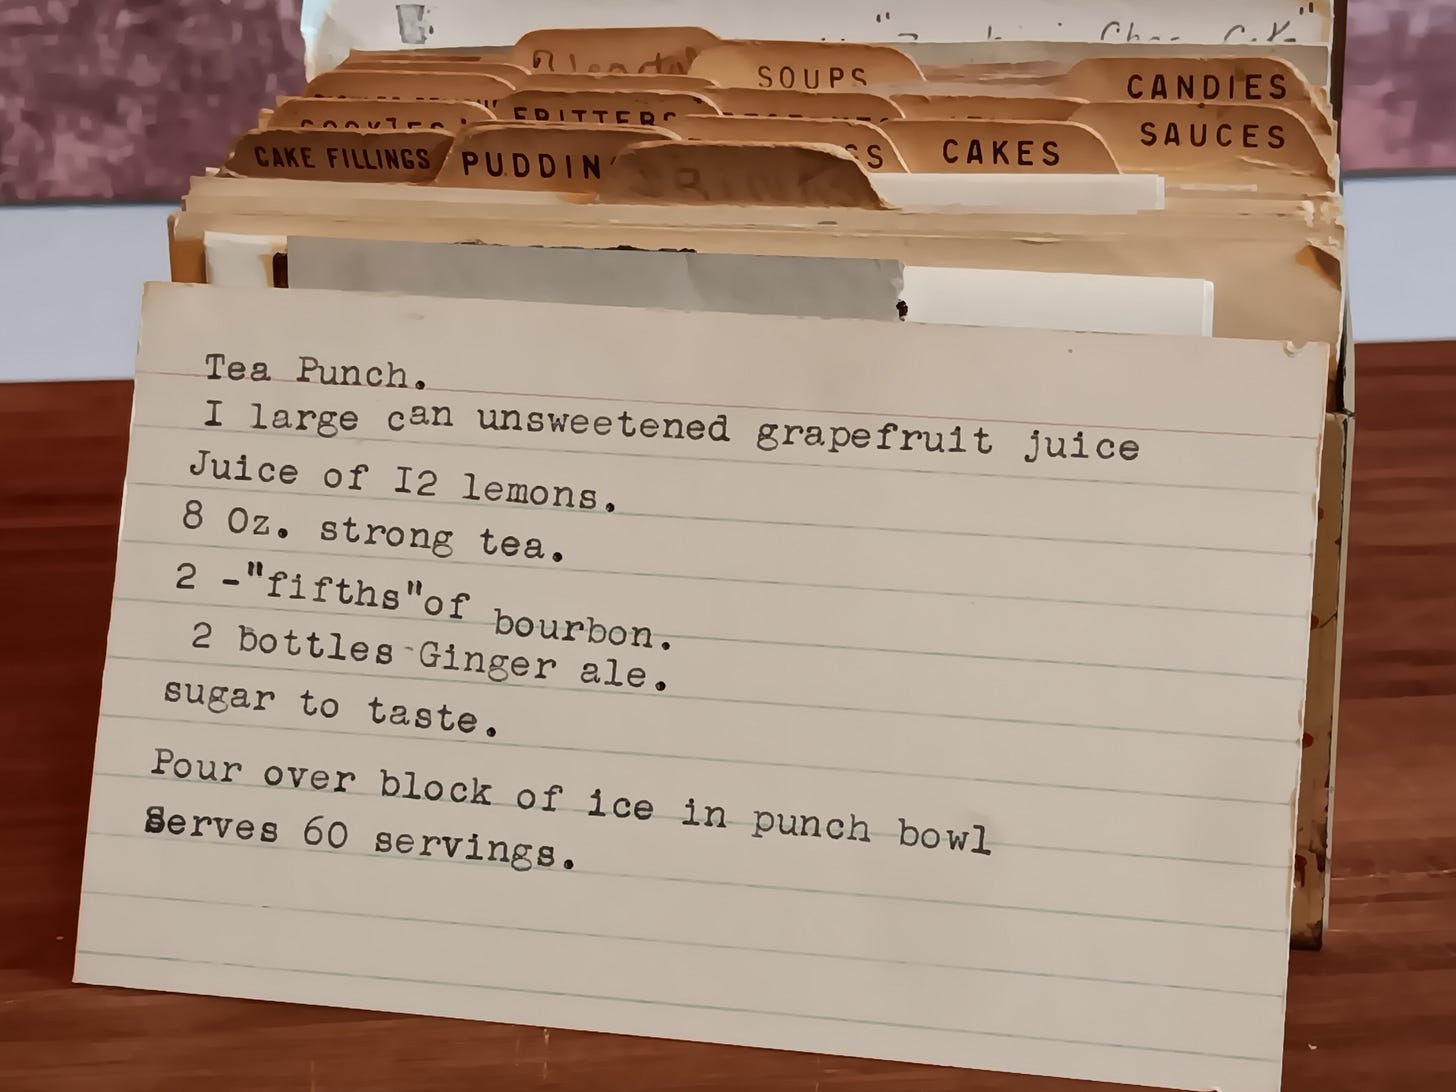 SOUPS
CANDIES
COOKIES
FRITTERS
SAUCES
CAKE FILLINGS
PUDDIN
CAKES
Tea Punch.
I large can unsweetened grapefruit juice
Juice of I2 lemons.
8 Oz. strong tea.
2 -"fifths"of bourbon.
2 bottles-Ginger ale.
sugar to taste.
Pour over block of ice in punch bowl
Serves 60 servings.